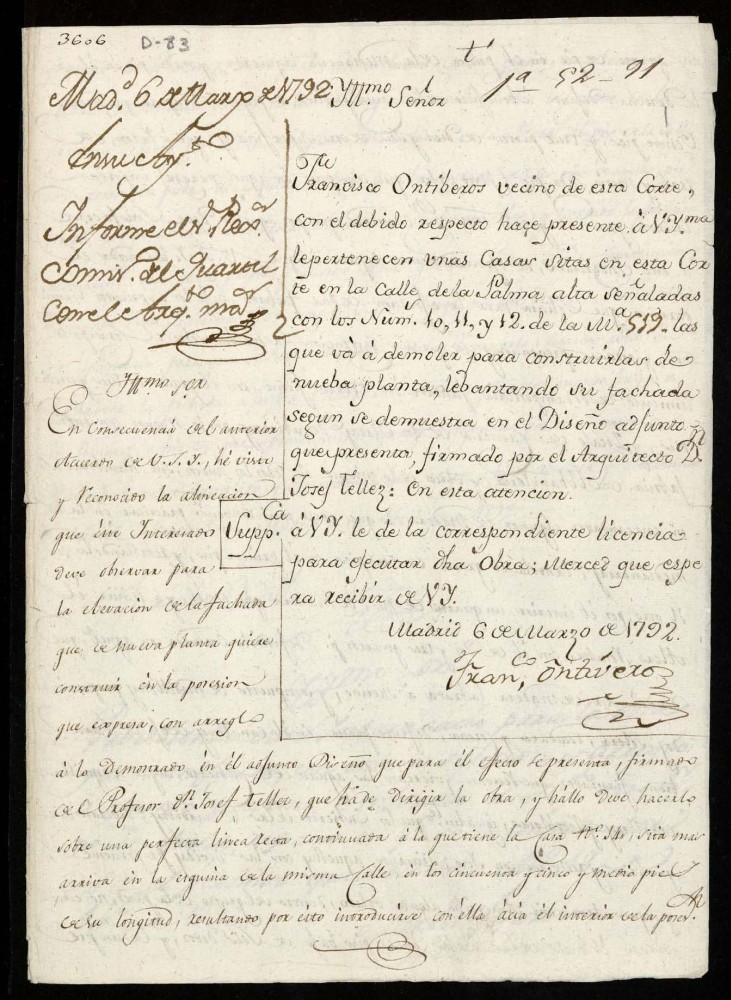 3606
D-83
t
1ª 52-91
1
Mad.d 6 de Marzo de 1792
En su Ay.to
Informe el S.r Rex.or
Comis.o del Quartel
con el Arq.to m.or
Yll.mo Señor
Francisco Ontiberos vecino de esta Corte,
con el debido respecto haçe presente à V.Y.ma
le pertenecen unas Casas sitas en esta Cor
te en la Calle de la Palma alta señaladas
con los Num.s 10, 11, y 12. de la M.a 519. las
que và à demoler para construirlas de
nueba planta, lebantando su fachada
segun se demuestra en el Diseño adjunto
que presenta, firmado por el Arquitecto D.n
Josef Tellez: en esta atencion.
Supp.ca
à V.Y. le de la correspondiente licencia
para ejecutar dha Obra; Merced que espe
ra recibir de V.Y.
Madrid 6 de Marzo de 1792.
Fran.co Ontivero
Yll.mo Sor
En consecuencia del anterior
Acuerdo de V.S.Y., hé visto
y reconocido la alineacion
que éste Interesado
deve observar para
la elevacion de la fachada
que de nueva planta quiere
construir én la posesion
que expresa, con arreglo
à lo demostrado én él adjunto Diseño que para él éfecto se presenta, firmado
del Profesor D.n Josef Tellez, que há de dirigir la obra, y hállo deve hacerlo
sobre una perfecta linea recta, continuada à la que tiene la Casa N.o 14, sita mas
arriva én la esquina de la misma Calle, en los cincuenta y cinco y medio pies
de su longitud, resultando por ésto introducirse con élla ácia él interior de la poses.n